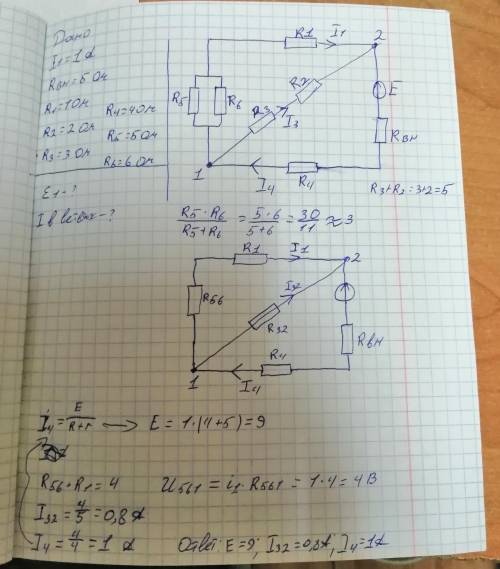 Дано
I1=1А
Rвн=5 Ом
R1=1Ом
R2=2 Ом
R3=3 Ом
R4=4Ом
R5=5Ом
R6=6 Ом
E1-?
I в ветвях-?
R1 I1 2
R5 R6 R3 R2 I3 E
Rвн
1 I4 R4
R3+R2=3+2=5
R5·R6/R5+R6 = 5·6/5+6 = 30/11 ≈ 3
R1 I1 2
R56 I32
R32 Rвн
1 I4 R4
I4=E/R+r → E = 1·(4+5)=9
R56+R1=4 U561 = i1·R561 = 1·4=4В
I32=4/5=0,8А
I4=4/4=1 А Ответ: E=9; I32=0,8А, I4=1А